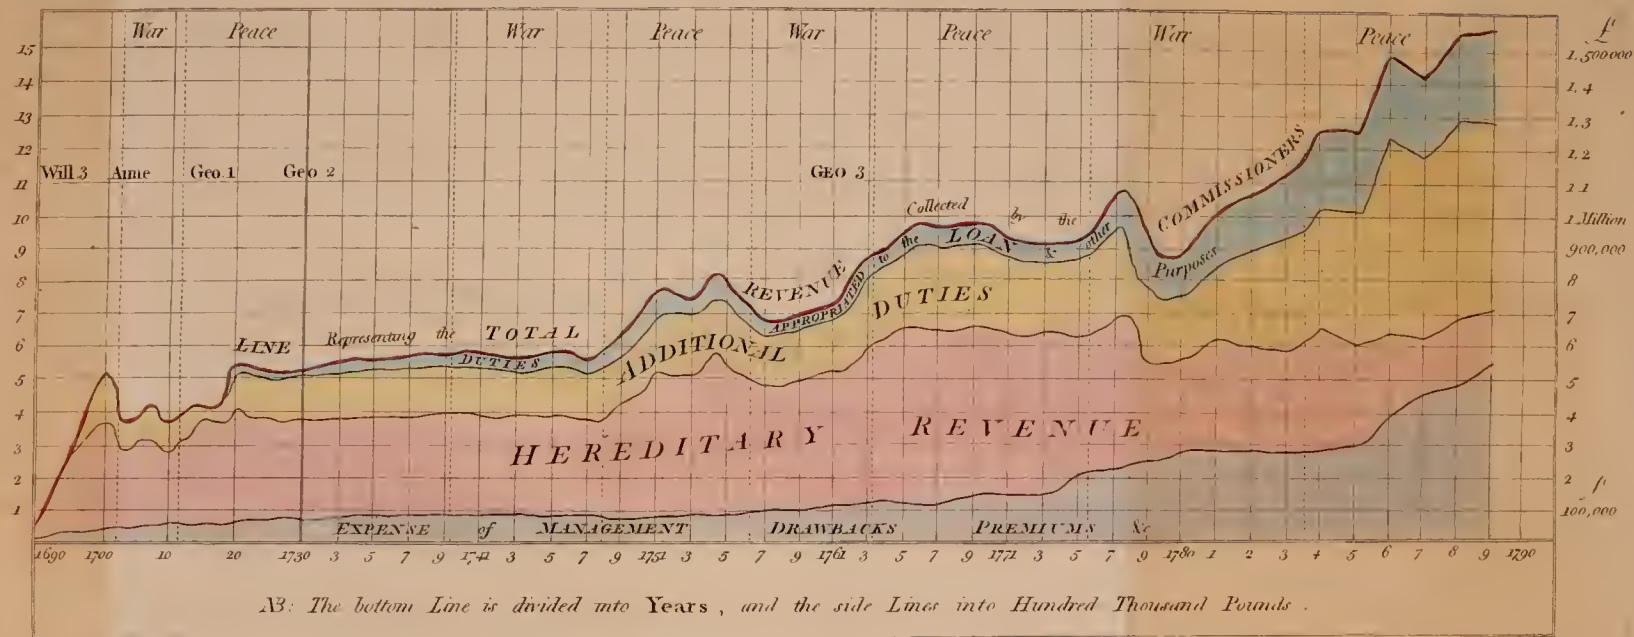 War Peace War Peace War Peace War Peace
£
15 1,500000
14 1,4
13 1,3
12 1,2
11 1,1
10 1 Million
9 900,000
8 8
7 7
6 6
5 5
4 4
3 3
2 2
1 100,000
£
Will 3 Anne Geo. 1 Geo 2 GEO 3
LINE Representing the TOTAL REVENUE Collected by the COMMISSIONERS
DUTIES APPROPRIATED to the LOAN & other Purposes
ADDITIONAL DUTIES
HEREDITARY REVENUE
EXPENSE of MANAGEMENT DRAWBACKS PREMIUMS &c
1690 1700 10 20 1730 3 5 7 9 1741 3 5 7 9 1751 3 5 7 9 1761 3 5 7 9 1771 3 5 7 9 1780 1 2 3 4 5 6 7 8 9 1790
NB: The bottom Line is divided into Years, and the side Lines into Hundred Thousand Pounds.